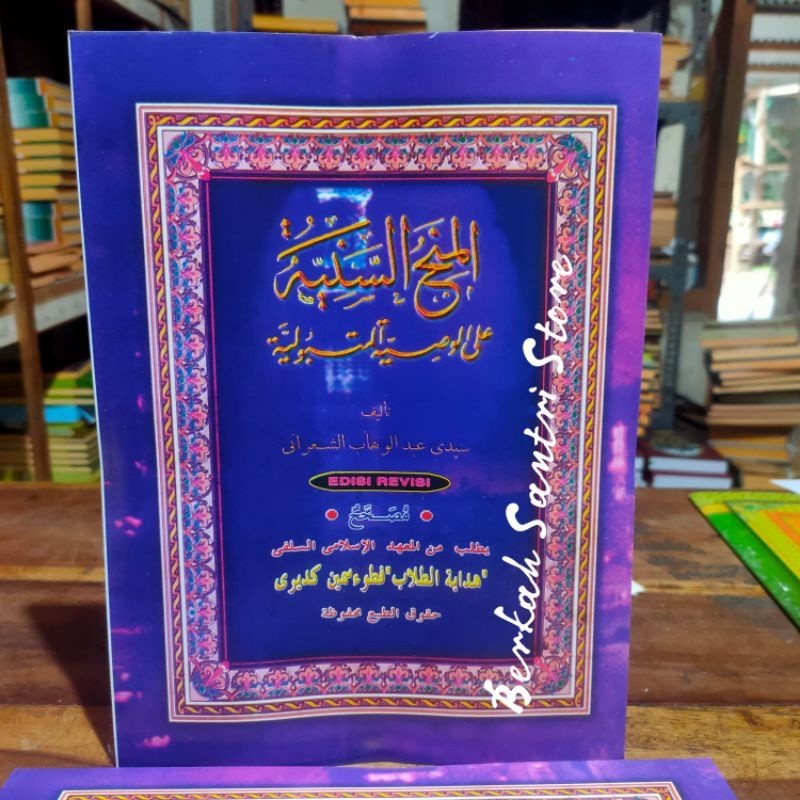 المِنَحُ السَّنِيَّةُ
على الوصية المتبولية
تأليف
سيدى عبد الوهاب الشعرانى
EDISI REVISI
مُصَحَّحٌ
يطلب من المعهد الإسلامى السلفى
"هداية الطلاب" فطوء سمين كديرى
حقوق الطبع محفوظة
Berkah Santri Store